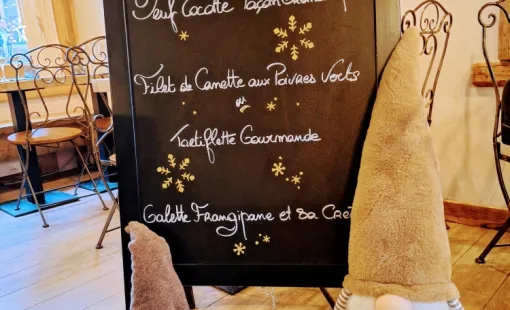 Oeuf Cocotte façon
Filet de Canette aux Poivres Verts
ou
Tartiflette Gourmande
Galette Frangipane et sa Crè